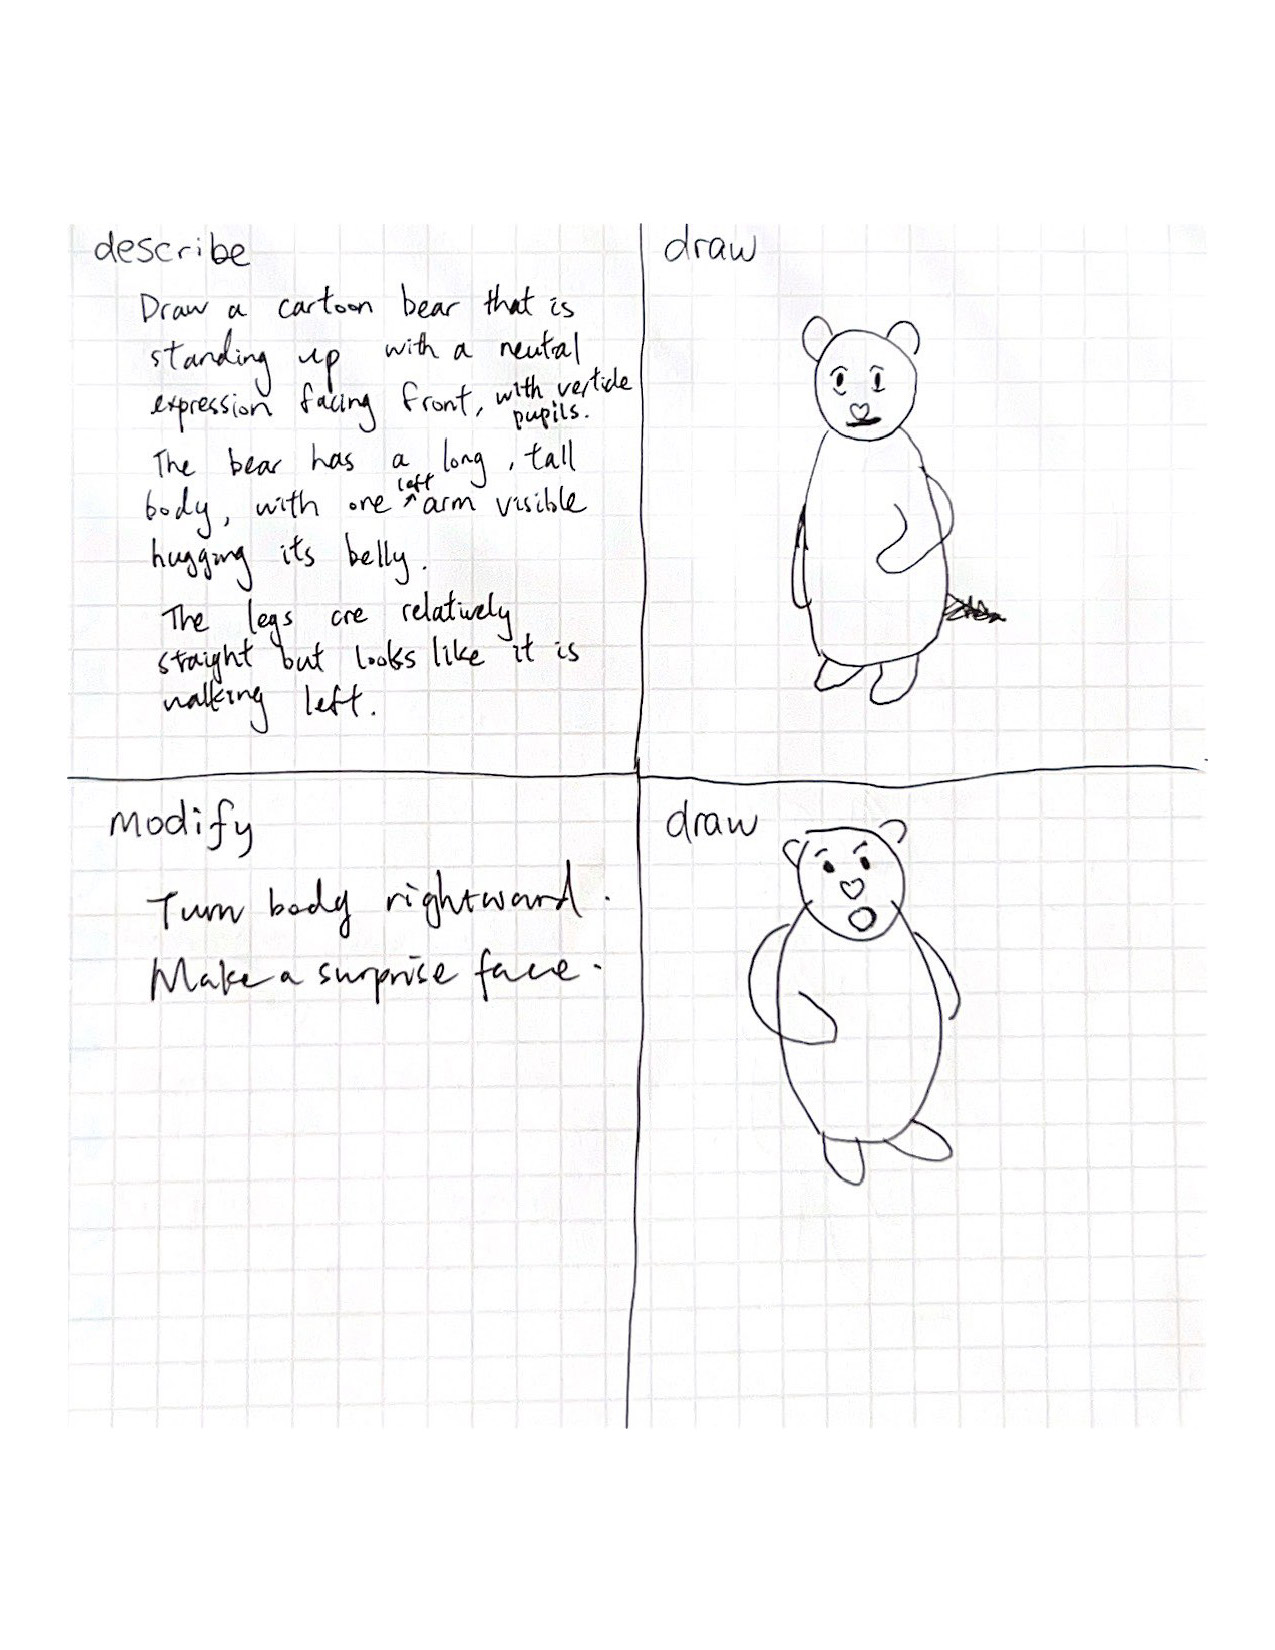 describe
Draw a cartoon bear that is
standing up with a neutal
expression facing front, with verticle
pupils.
The bear has a long, tall
body, with one left arm visible
hugging its belly.
The legs are relatively
straight but looks like it is
walking left.
draw
modify
Turn body rightward.
Make a surprise face.
draw